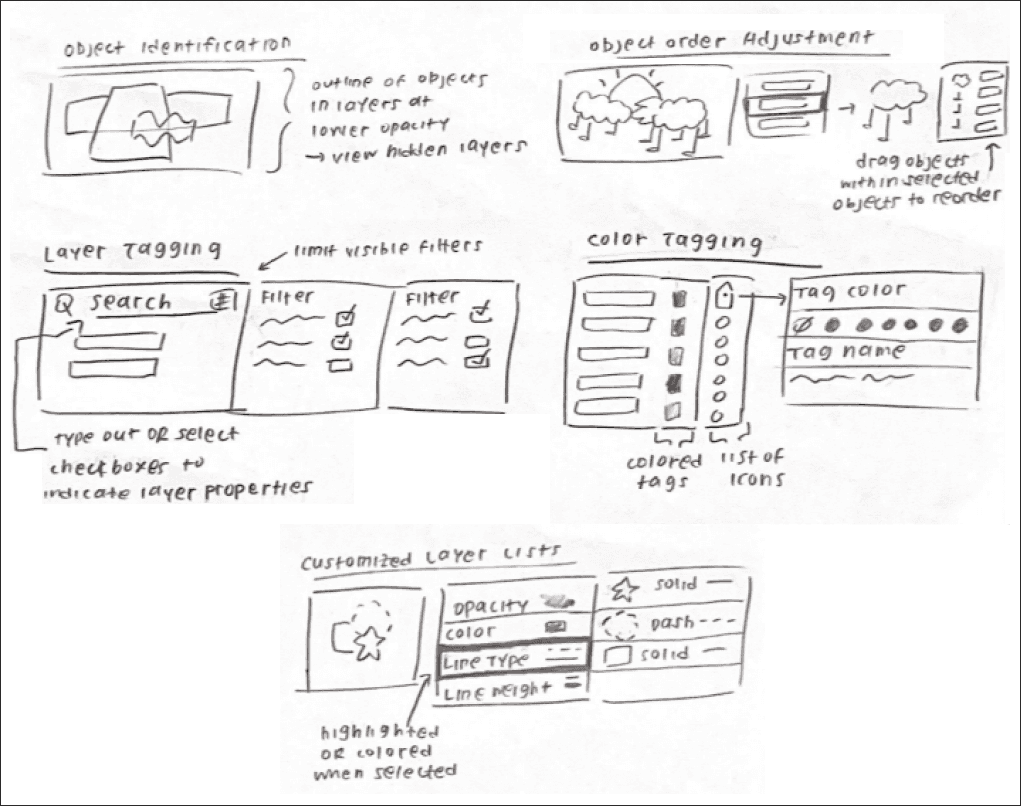 Object Identification
outline of objects
in layers at
lower opacity
→ view hidden layers
Object Order Adjustment
drag objects
within selected
objects to reorder
Layer Tagging
limit visible filters
Search #
Filter
Filter
type out OR select
checkboxes to
indicate layer properties
Color Tagging
Tag color
Tag name
colored
tags
list of
icons
Customized Layer Lists
Opacity
Color
Line Type
Line Weight
solid
Dash
solid
highlighted
OR colored
when selected